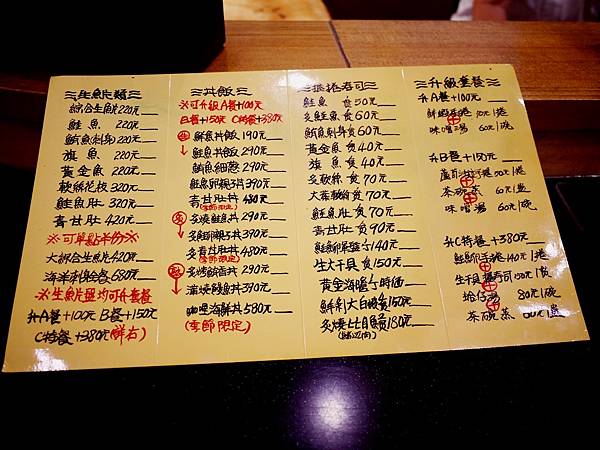 生魚片類
綜合生魚片220元
鮭魚 220元
鮪魚刺身220元
旗魚 220元
黃金魚 220元
軟絲花枝 320元
鮭魚肚 320元
青甘肚 420元
※可單點半份※
大綜合生魚片420元
680元
※生魚片盤均可升套餐
升A餐+100元 B餐+150元
C特餐+380元(鮮右)
丼飯
※可升級A餐+100元
B餐+150元 C特餐+380
生
鮮魚丼飯190元
鮭魚丼飯290元
鮪魚細蔥290元
鮭魚卵親子丼390元
青甘肚丼 480元
(季節限定)
炙
炙燒鮭魚丼290元
炙鮭卵親子丼390元
炙青甘肚丼 480元
(季節限定)
熟
炙烤鯖香丼 290元
蒲燒鰻魚丼390元
咖哩海鮮丼580元
(季節限定)
握捲壽司
鮭魚 貪50元
炙鮭魚貪60元
鮪魚刺身貪60元
黃金魚貪40元
旗魚 貪40元
炙軟絲貪70元
貪70元
鮭魚肚 貪70元
青甘肚 貪90元
鮭魚卵 140元
生大干貝貪150元
黃金海膽 時價
150元
180元
升級套餐
升A餐+100元
鮮蝦手捲 70元/捲
味噌湯 60元/碗
升B餐+150元
蘆筍沙拉手捲 70元/捲
茶碗蒸 60元/盅
味噌湯 60元/碗
升C特餐+380元
鮭魚卵手捲140元/捲
生干貝握壽司150元/貫
蛤仔湯 80元/碗
茶碗蒸 60元/盅